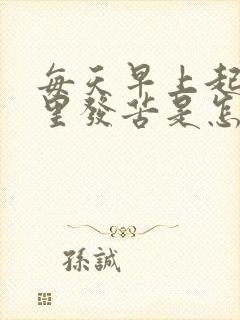 每天早上起
里發苦是怎
孫誠